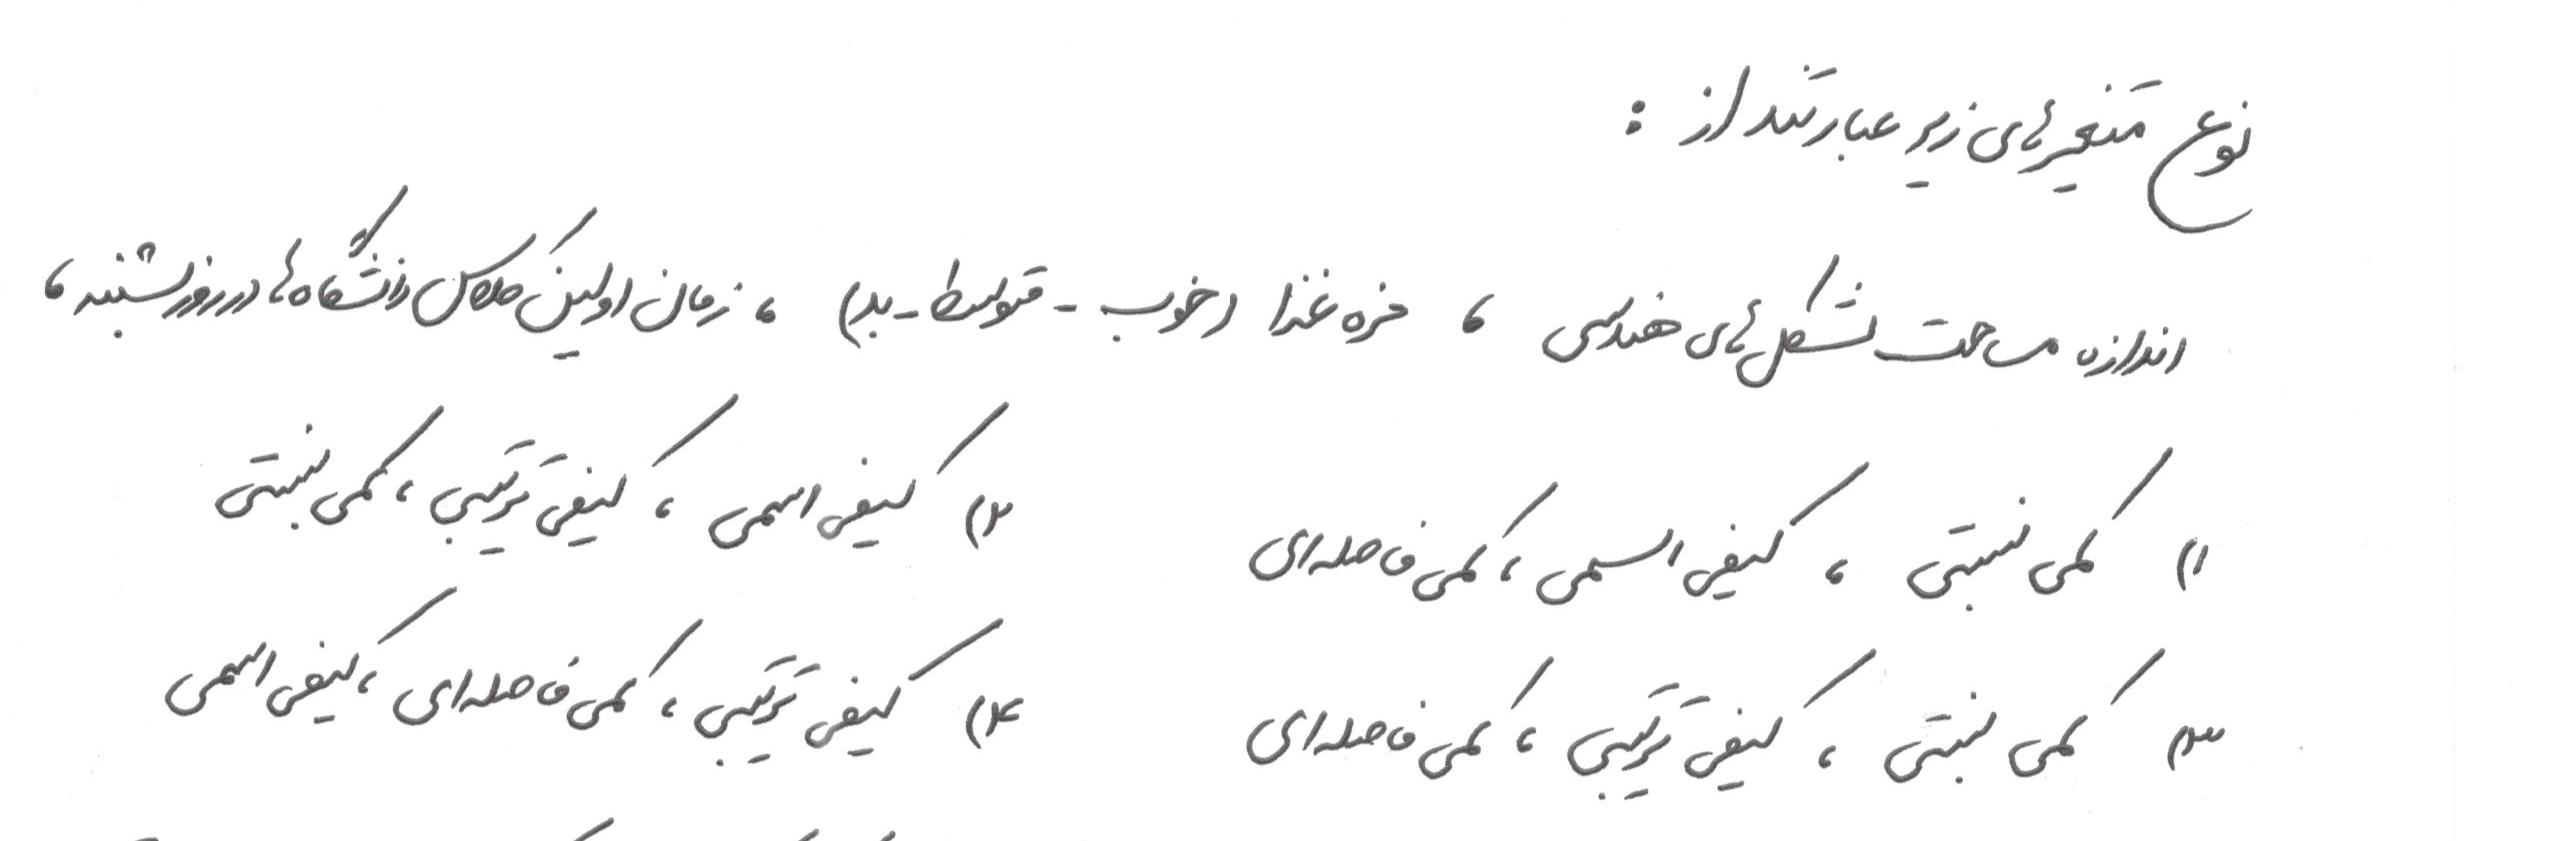 نوع متغیرهای زیر عبارتند از :
اندازه مساحت شکل‌های هندسی ، مزه غذا (خوب - متوسط - بد) ، زمان اولین کلاس دانشگاه‌ها در روز شنبه ،
۱) کمی نسبتی ، کیفی اسمی ، کمی فاصله‌ای ۲) کیفی اسمی ، کیفی ترتیبی ، کمی نسبتی
۳) کمی نسبتی ، کیفی ترتیبی ، کمی فاصله‌ای ۴) کیفی ترتیبی ، کمی فاصله‌ای ، کیفی اسمی